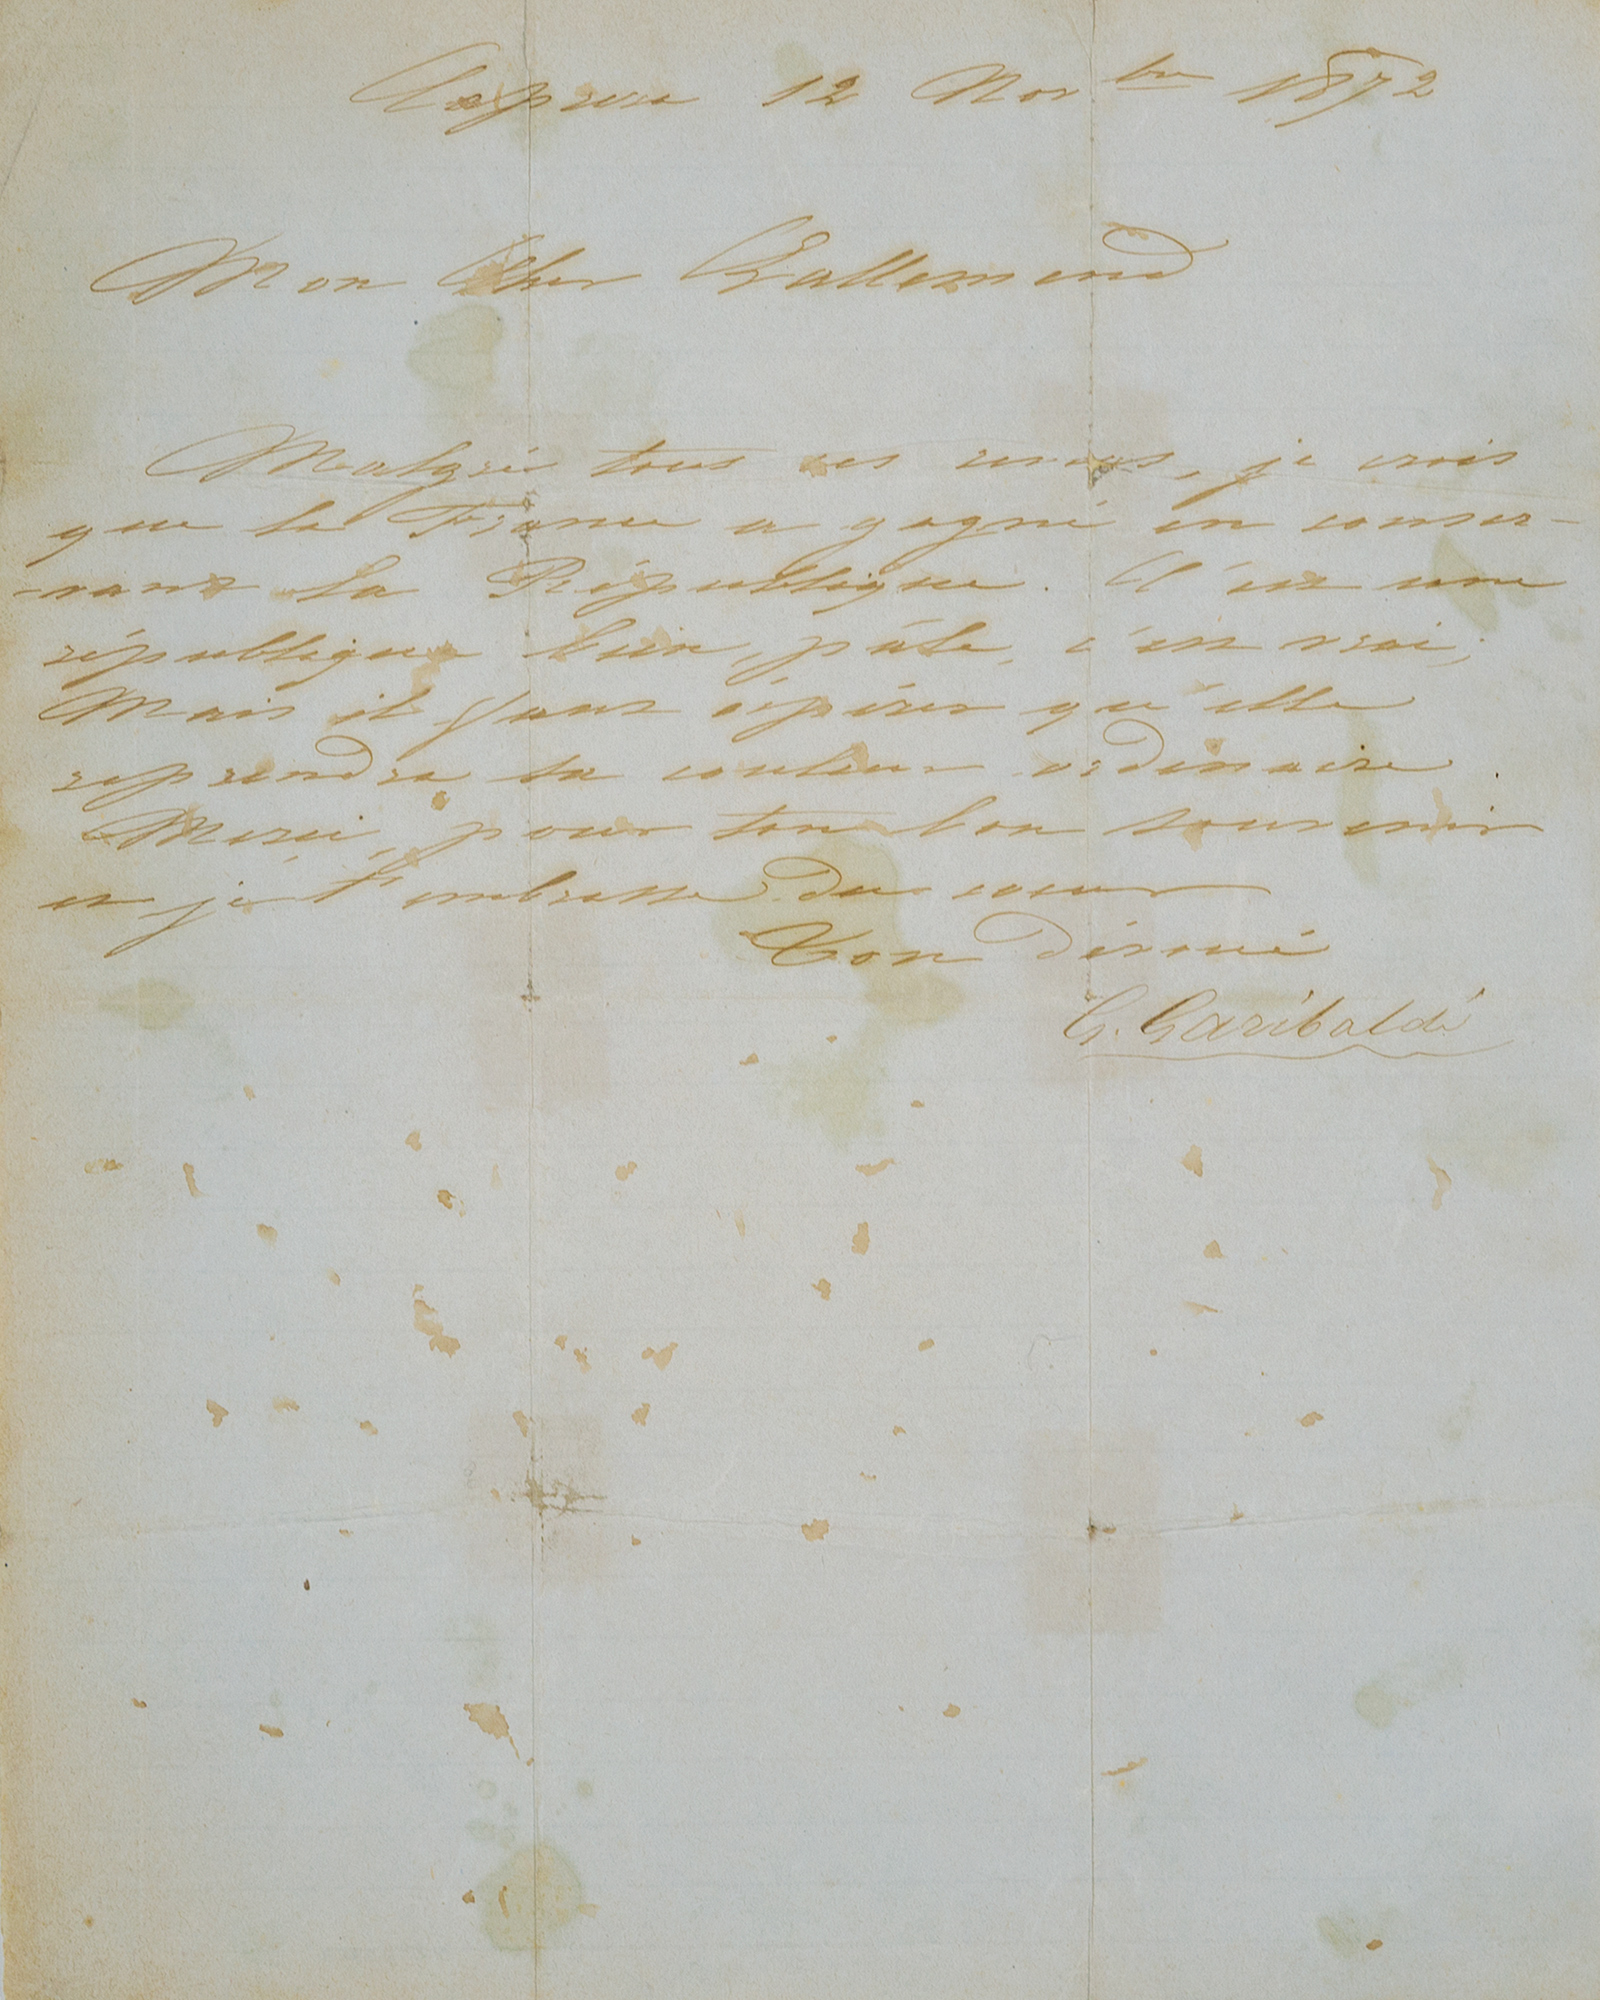 Caprera 12 Novbre 1872
Mon Cher Gallemand
Malgré tous ces revers, je crois
que la France a gagné en conser-
-vant la République. C'est une
république bien pâle, c'est vrai;
Mais il faut éspérer qu'elle
reprendra sa couleur ordinaire.
Merci, pour ton bon souvenir
et je t'embrasse du coeur
Ton dévoué
G. Garibaldi